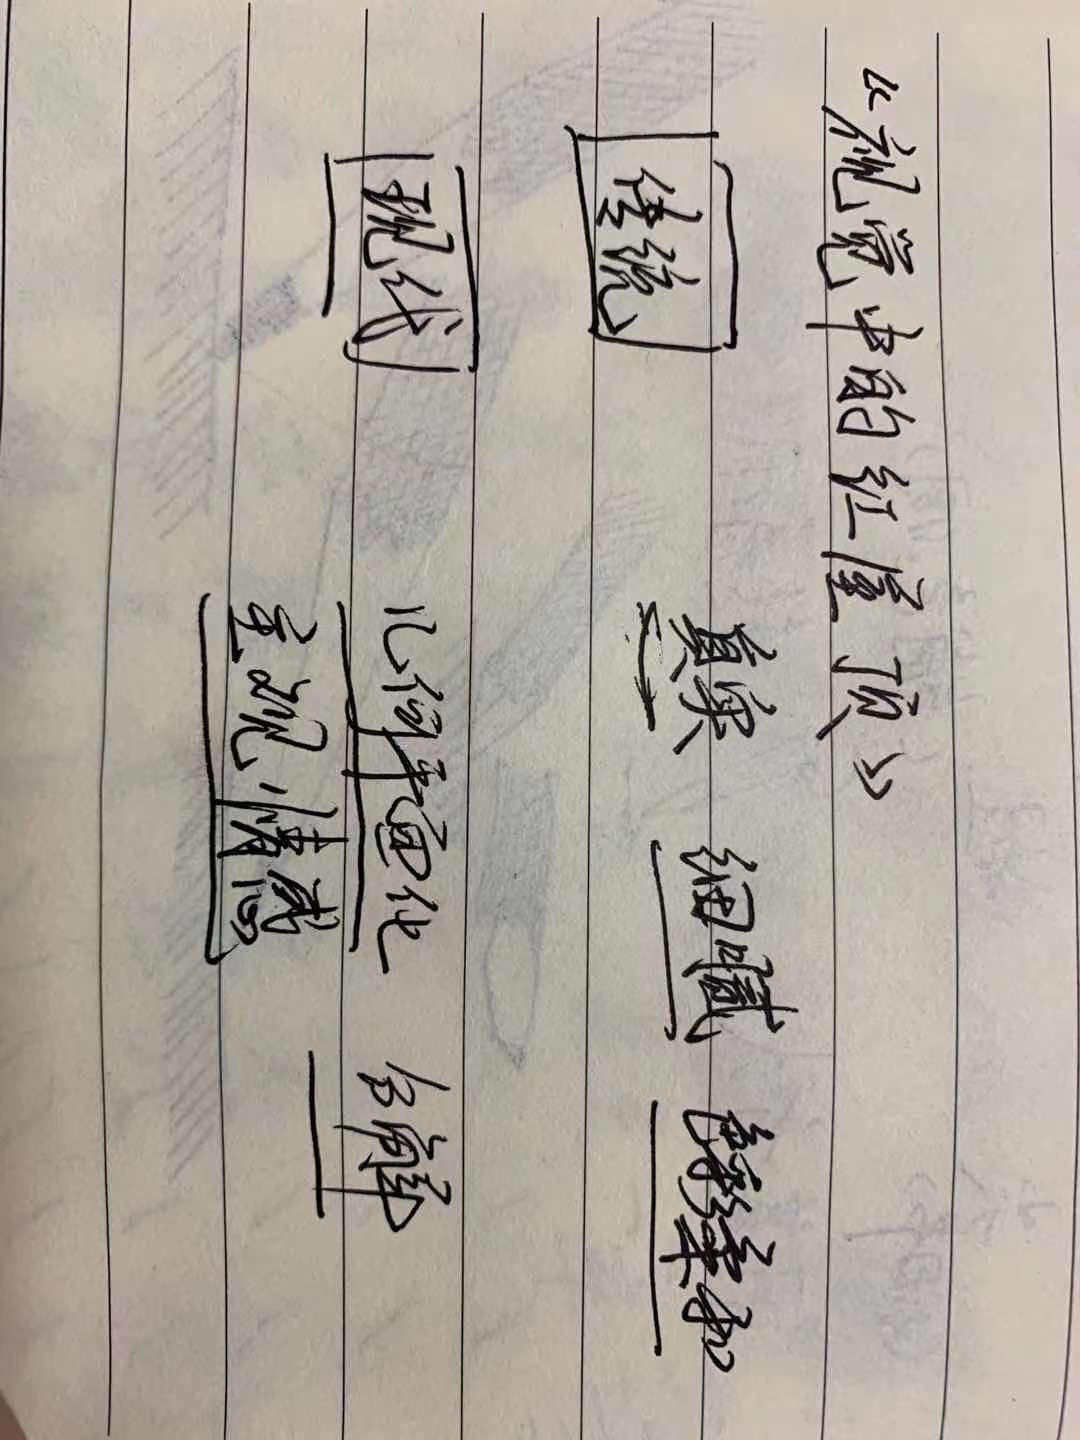 《视觉中的红屋顶》
传统
真实 细腻 色彩柔和
现代
几何平面化 分解
主观情感